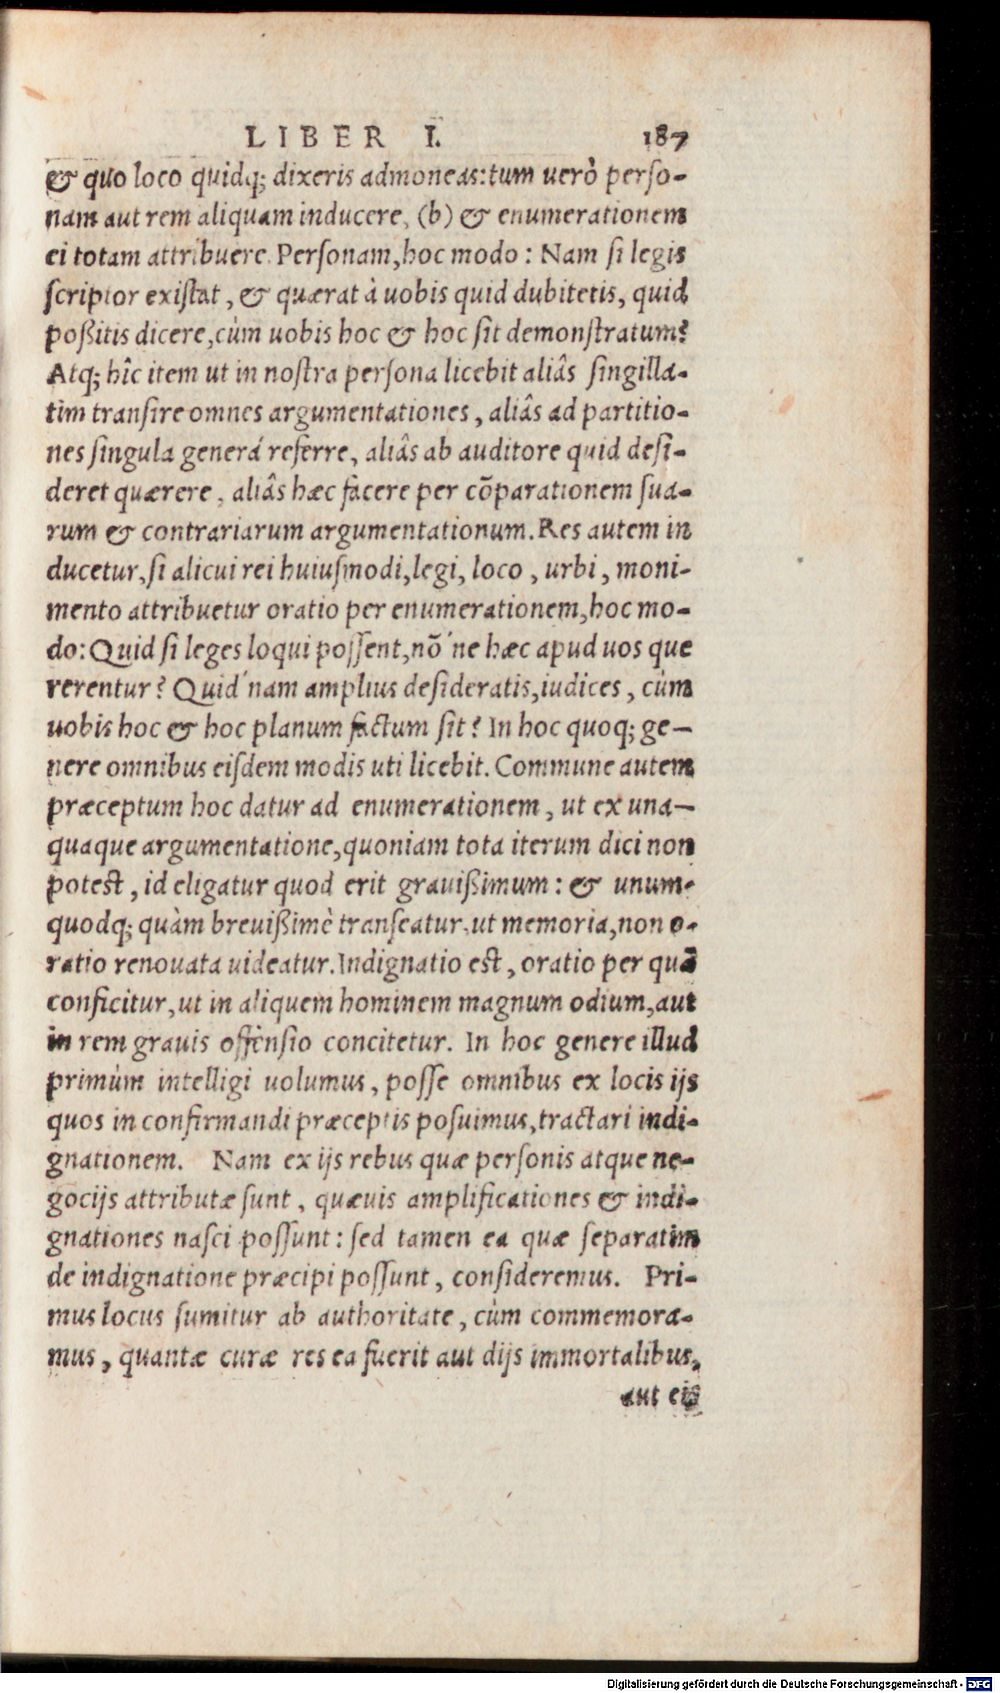 LIBER I. 187
& quo loco quidq; dixeris admoneas: tum uerò perso-
nam aut rem aliquam inducere, (b) & enumerationem
ei totam attribuere. Personam, hoc modo: Nam si legis
scriptor existat, & quærat à uobis quid dubitetis, quid
poßitis dicere, cùm uobis hoc & hoc sit demonstratum?
Atq; hîc item ut in nostra persona licebit aliâs singilla-
tim transire omnes argumentationes, aliâs ad partitio-
nes singula generá referre, aliâs ab auditore quid desi-
deret quærere, aliâs hæc facere per cõparationem sua-
rum & contrariarum argumentationum. Res autem in
ducetur, si alicui rei huiusmodi, legi, loco, urbi, moni-
mento attribuetur oratio per enumerationem, hoc mo-
do: Quid si leges loqui possent, nõ ́ne hæc apud uos que
rerentur? Quid ́nam amplius desideratis, iudices, cùm
uobis hoc & hoc planum factum sit? In hoc quoq; ge-
nere omnibus eisdem modis uti licebit. Commune autem
præceptum hoc datur ad enumerationem, ut ex una-
quaque argumentatione, quoniam tota iterum dici non
potest, id eligatur quod erit grauißimum: & unum-
quodq; quàm breuißimè transeatur, ut memoria, non o-
ratio renouata uideatur. Indignatio est, oratio per quã
conficitur, ut in aliquem hominem magnum odium, aut
in rem grauis offensio concitetur. In hoc genere illud
primùm intelligi uolumus, posse omnibus ex locis ijs
quos in confirmandi præceptis posuimus, tractari indi-
gnationem. Nam ex ijs rebus quæ personis atque ne-
gocijs attributæ sunt, quæuis amplificationes & indi-
gnationes nasci possunt: sed tamen ea quæ separatim
de indignatione præcipi possunt, consideremus. Pri-
mus locus sumitur ab authoritate, cùm commemora-
mus, quantæ curæ res ea fuerit aut dijs immortalibus,
aut eis
Digitalisierung gefördert durch die Deutsche Forschungsgemeinschaft - DFG